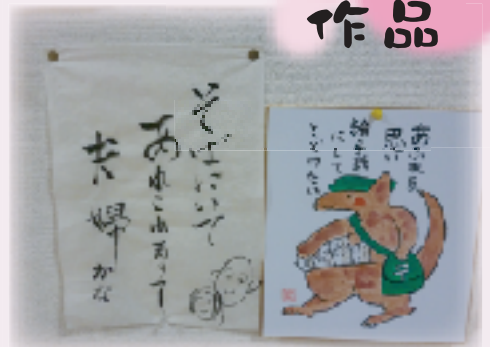 作品
そばにいて
あれこれあって
夫婦かな
あふれる
思い
絵手紙
にして
とどけたい